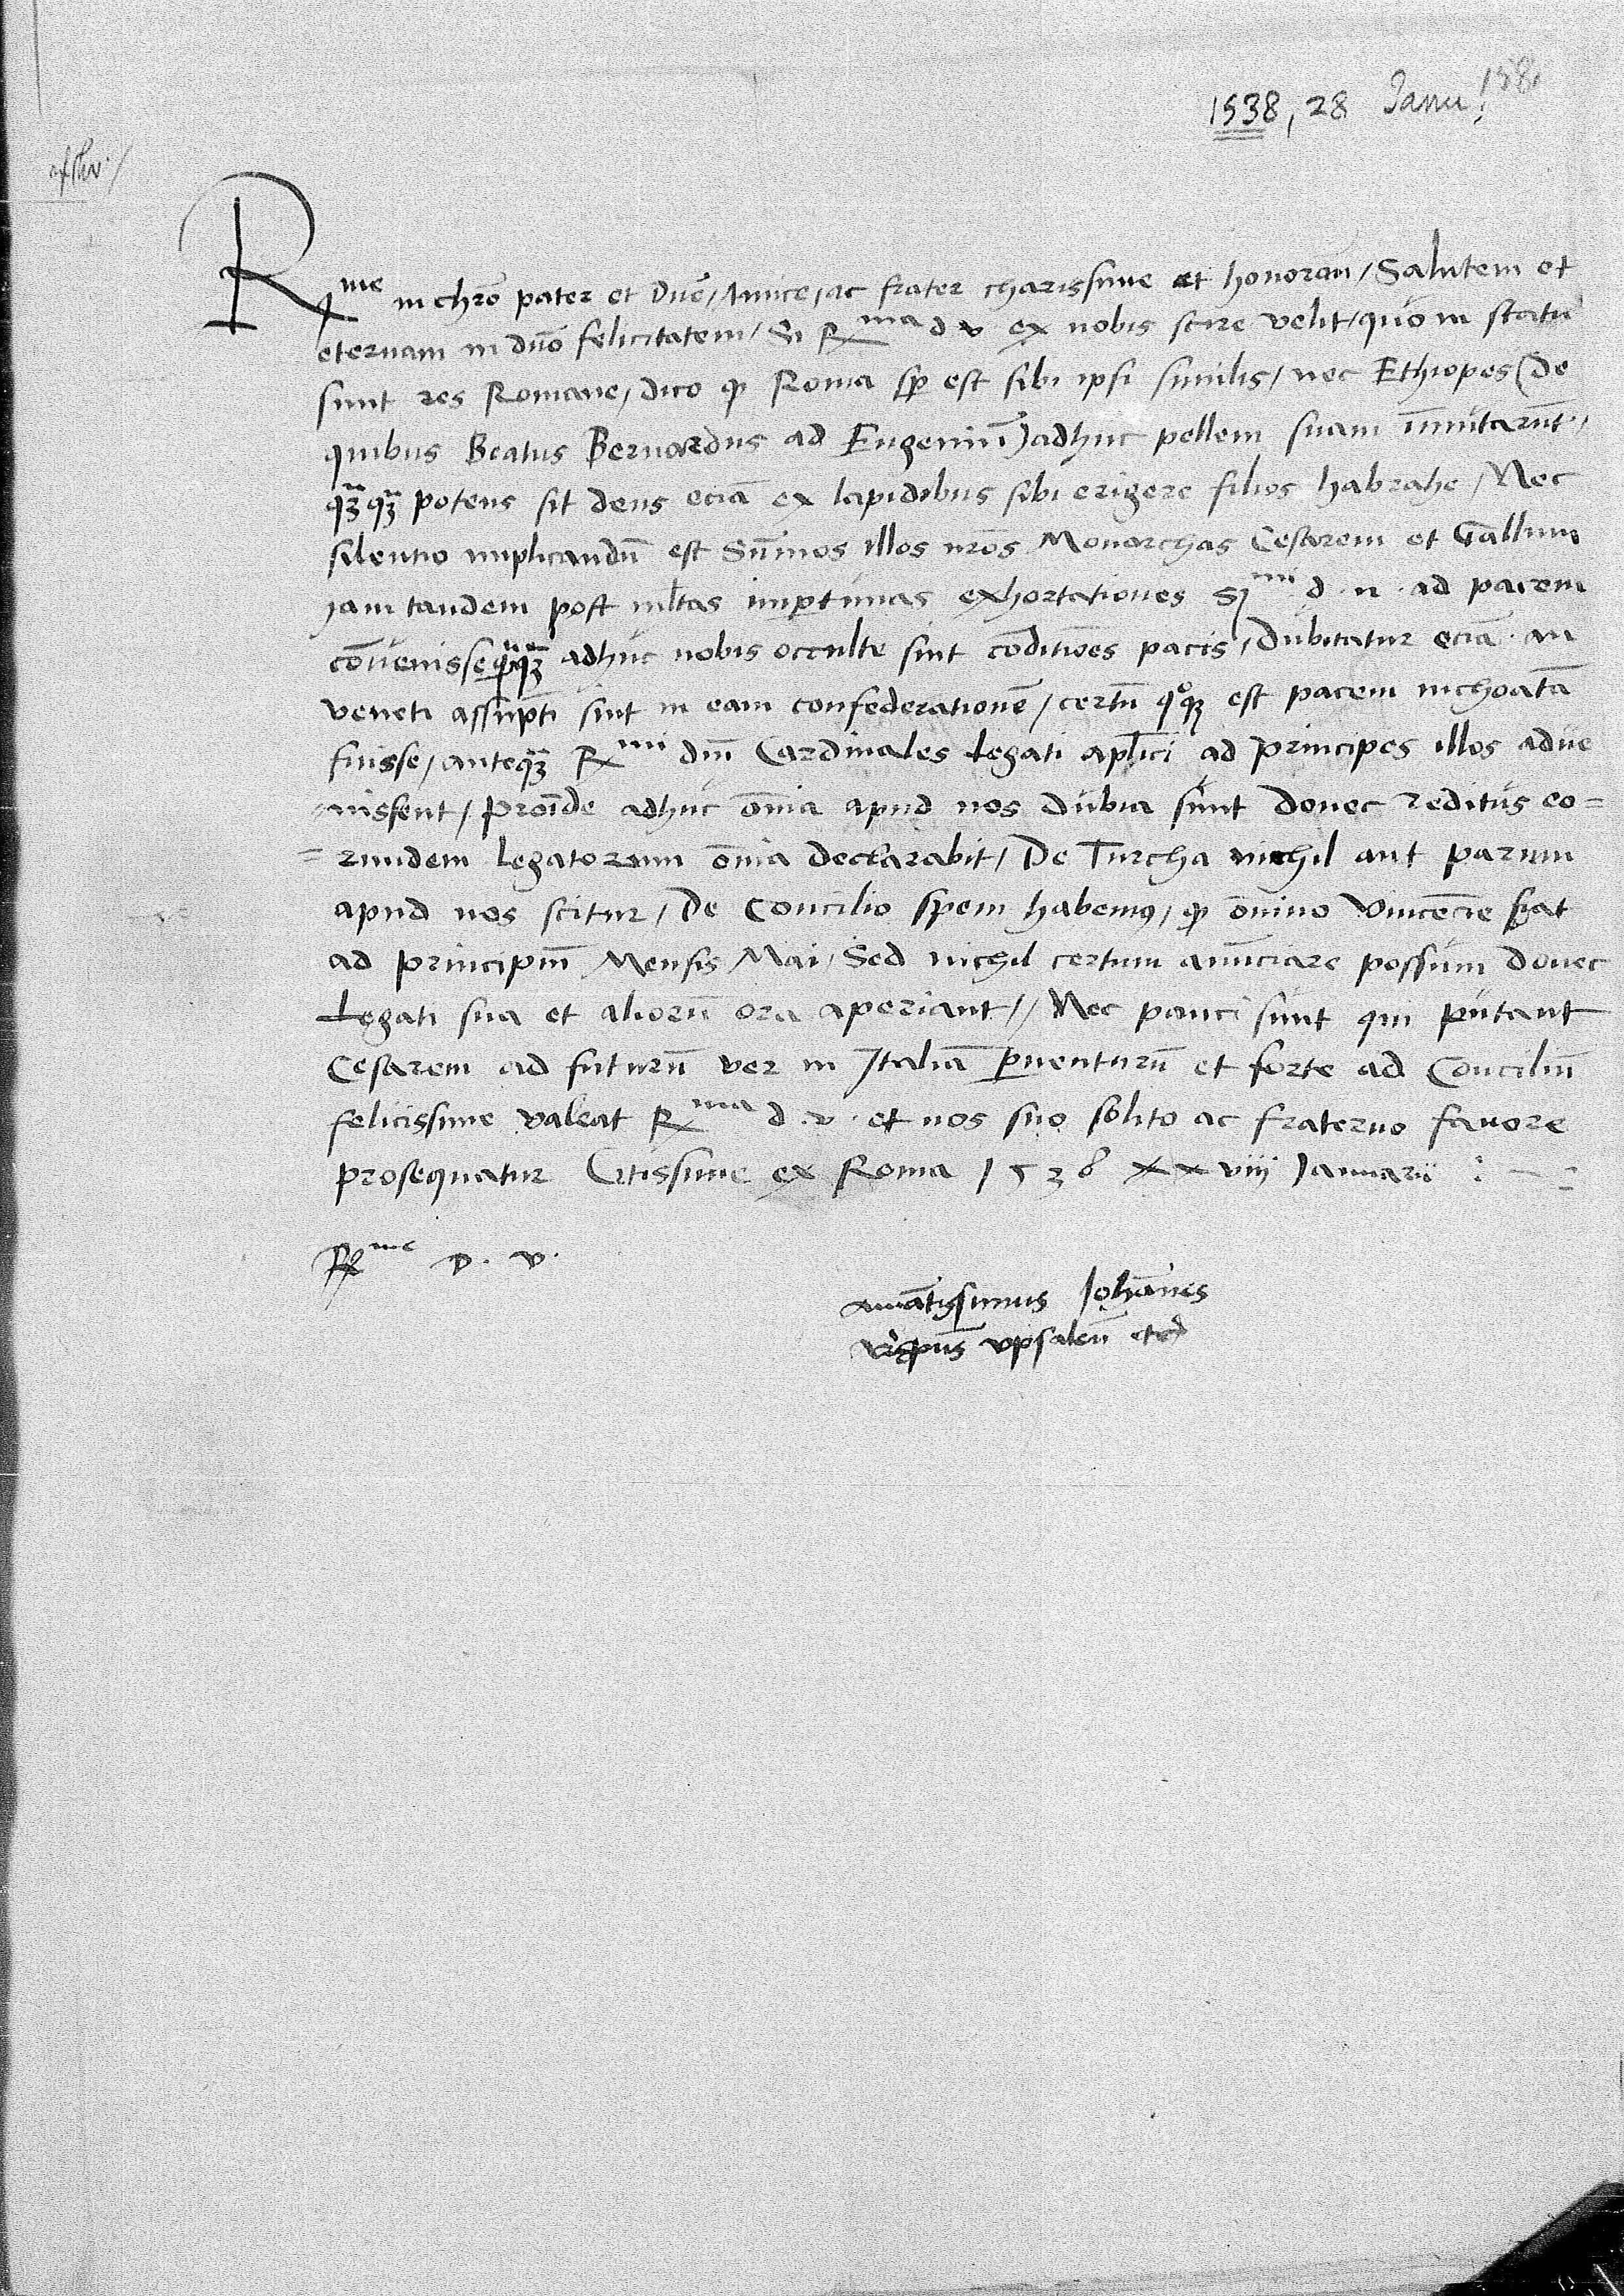 1538, 28 Janu: 158
R
me in chro pater et Dne, Amice, ac frater charissime et honoran, Salutem et
eternam in dno felicitatem, Si Rma d v ex nobis scire velit, quo in statu
sunt res Romane, dico qp Roma sp est sibi ipsi similis, nec Ethiopes (de
quibus Beatus Bernardus ad Eugeniū) adhuc pellem suam īmutarūt,
qzqz potens sit deus eciā ex lapidibus sibi erigere filios habrahe, Nec
silentio implicandū est Sūmos illos nros Monarchas Cesarem et Gallum
jam tandem post mltas importunas exhortationes Smi d. n. ad pacem
cōvenisse qqz adhuc nobis occulte sint cōditiōes pacis, Dubitatur eciā an
veneti assūpti sint in eam confederationē, certū qoqz est pacem inchoatā
fuisse, anteqz Rmi dni Cardinales Legati aplici ad principes illos adue
nissent, proīde adhuc oīnia apud nos dubia sunt donec reditus eo=
=rundem Legatorum oīnia declarabit, De Turcha nichil aut parum
apud nos scitur, De Concilio spem habemus, qp oīnino Vincēcie fiat
ad principiū Mensis Mai, Sed nichil certum anūciare possum donec
Legati sua et aliorū ora aperiant,, Nec pauci sunt qui putant
Cesarem ad futurū ver in Italiā pventurū et forte ad Conciliū
felicissime valeat Rma d. v. et nos suo solito ac fraterno favore
prosequatur Citissime ex Roma 1538 xxviij Januarii :
Rme D. v.
amātissimus Johānes
Archiepus vpsaleñ